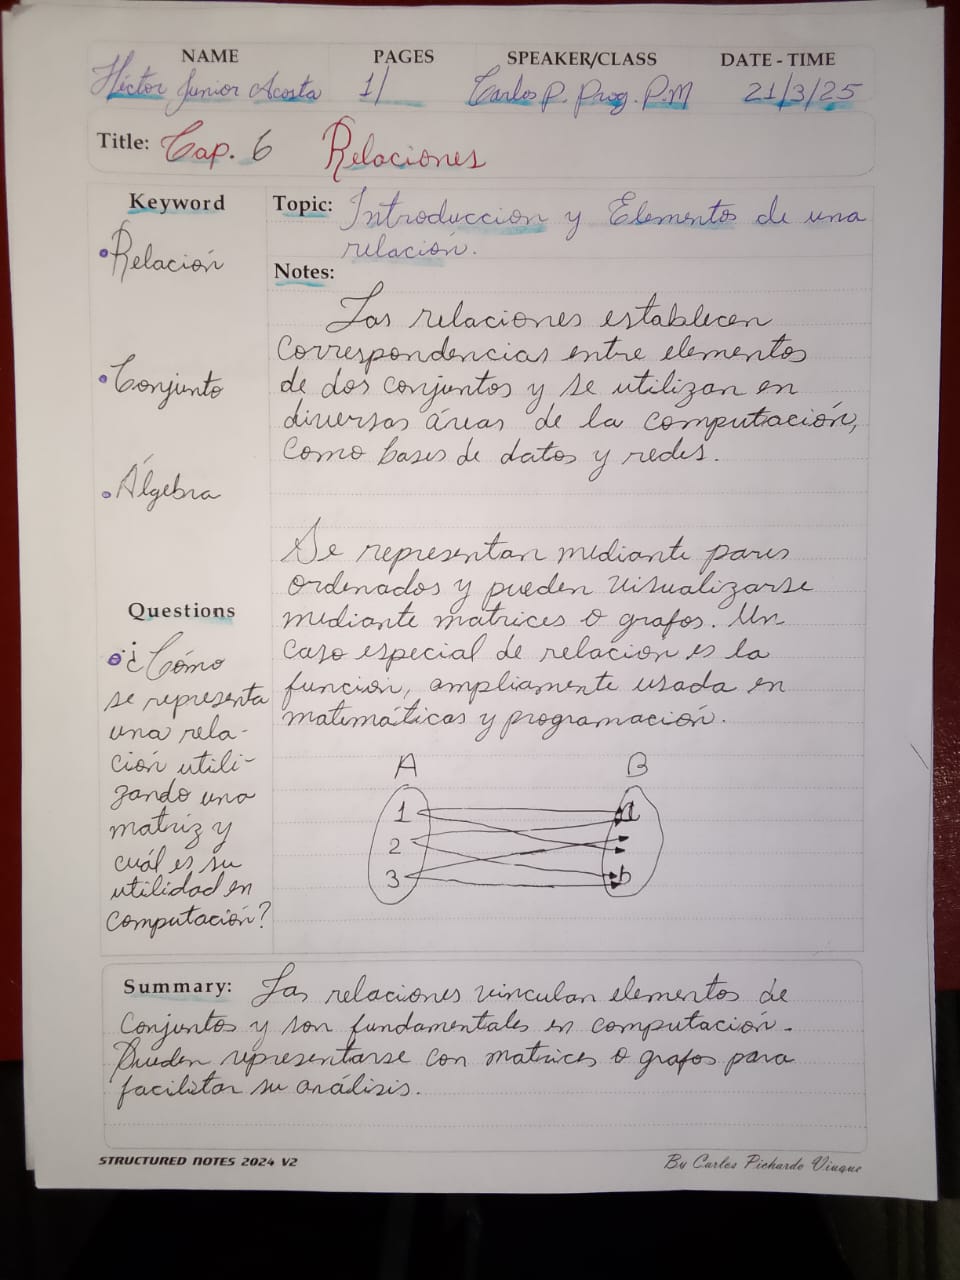 NAME PAGES SPEAKER/CLASS DATE - TIME
Héctor Junior Acosta 1/ Carlos P. Prog. P.M 21/3/25
Title: Cap. 6 Relaciones
Keyword
• Relación
• Conjunto
• Álgebra
Questions
• ¿Cómo
se representa
una rela-
ción utili-
zando una
matriz y
cuál es su
utilidad en
computación?
Topic: Introduccion y Elementos de una
relación.
Notes:
Las relaciones establecen
correspondencias entre elementos
de dos conjuntos y se utilizan en
diversas áreas de la computación,
como bases de datos y redes.
Se representan mediante pares
ordenados y pueden visualizarse
mediante matrices o grafos. Un
caso especial de relacion es la
función, ampliamente usada en
matemáticas y programación.
A B
1 a
2
3 b
Summary: Las relaciones vinculan elementos de
conjuntos y son fundamentales en computación.
Pueden representarse con matrices o grafos para
facilitar su análisis.
STRUCTURED NOTES 2024 V2 By Carlos Pichardo Viuque